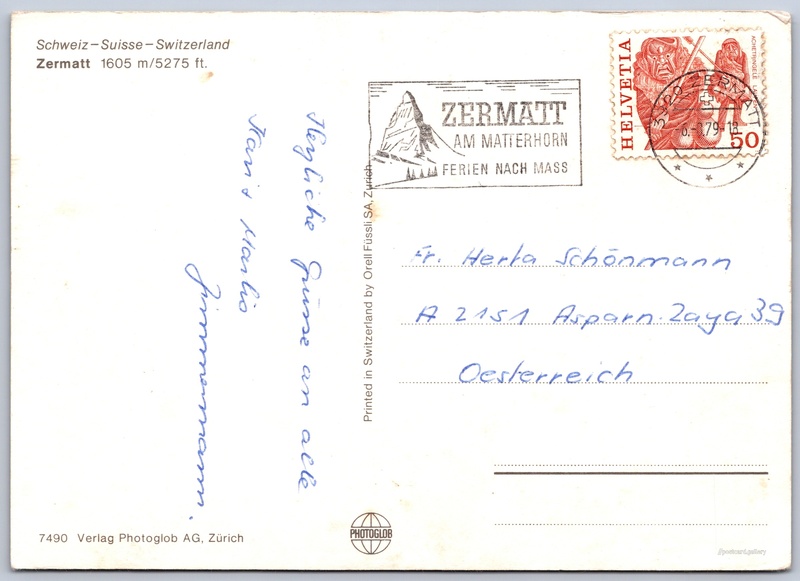 Schweiz – Suisse – Switzerland
Zermatt 1605 m/5275 ft.
Herzliche Grüsse an alle
ZERMATT
AM MATTERHORN
FERIEN NACH MASS
HELVETIA
50
3920 ZERMATT
.79-18
Fr. Herta Schönmann
A 2151 Asparn. Zaya 39
Oesterreich
Printed in Switzerland by Orell Füssli SA, Zürich
7490 Verlag Photoglob AG, Zürich
PHOTOGLOB
postcard.gallery